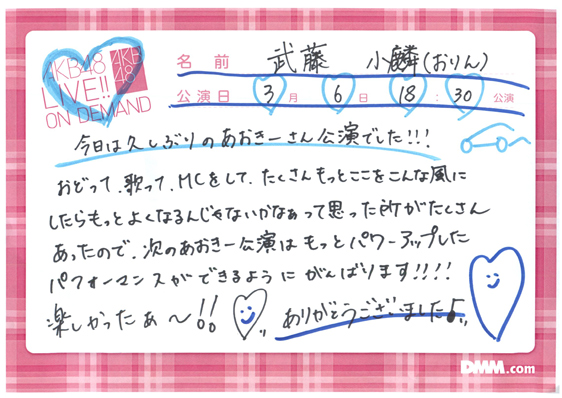 AKB48 LIVE!! ON DEMAND
AKB48
名前 武藤 小麟(おりん)
公演日 3月 6日 18:30公演
今日は久しぶりのあおきーさん公演でした!!!
おどって、歌って、MCをして、たくさんもっとここをこんな風に
したらもっとよくなるんじゃないかなぁって思った所がたくさん
あったので、次のあおきー公演はもっとパワーアップした
パフォーマンスができるようにがんばります!!!!
楽しかったぁ〜!!
ありがとうございました♪
DMM.com